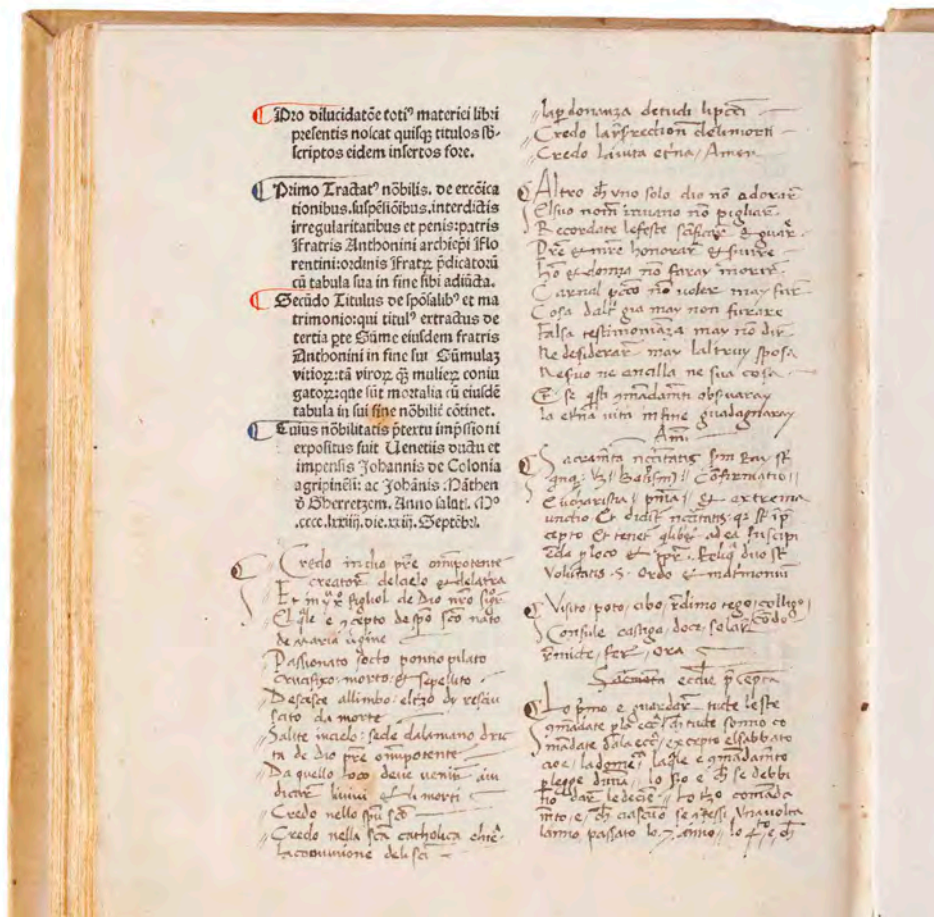 Pro dilucidatōe totiꝰ materiei libri
presentis noscat quisqꝫ titulos sb-
scriptos eidem insertos fore.
Primo Tractatꝰ nōbilis. de excōica
tionibus.suspēsiōibus.interdictis
irregularitatibus et penis:patris
Fratris Anthonini archiepi Flo
rentini:ordinis Fratꝝ p̄dicatorū
cū tabula sua in fine sibi adiūcta.
Secūdo Titulus de spōsalibꝰ et ma
trimonio:qui titulꝰ extractus de
tertia pte Sūme eiusdem fratris
Anthonini in fine sui Cūmulaꝫ
vitioꝝ:tā viroꝝ qꝫ mulieꝝ coniu
gatoꝝ:que sūt mortalia cū eiusdē
tabula in sui fine nōbilić cōtinet.
Cuius nōbilitatis p̄textu imp̄ssioni
expositus fuit Uenetiis ductu et
impensis Johannis de Colonia
agripinēsi: ac Johānis Māthen
d Gherretzem. Anno salat. Mº
.cccc.lxxiiij.die.xxiij. Septēbŕ.
Credo in dio pre omipotente
creator del cielo & dela tra
Et in figliol de Dio nro
El qle e ꝯcepto de spo sco nato
de Maria ugine
Passionato socto pontio pilato
crucifixo: morto: et sepellito
Descese allimbo: el tzo dy resciu
scito da morte
Salite in cielo: sede dala mano dric
ta de Dio pre omipotente
Da quello loco deue venir aiu
dicar li uiui & li morti
Credo nello spu sco
Credo nella sca catholica chie
La comunione deli sci
la pdonanza deli
Credo la rsrection deli morti
Credo la uita etna, Amen
Altro ch uno solo dio nō adorar
El suo nom inuano nō pigliar
Recordate le feste & guar
Pre & mre honorar & suire
ho & donna nō faray morir
Carnal pcco nō voler may far
Cosa dalt gia may non furare
Falsa testimonianza may nō dir
Ne desiderar may laltruy sposa
Ne suo ne ancilla ne sua cosa
Et se qsti ꝯmadamti obsuaray
la etna vita in fine guadagnaray
Am
Sacramta ncitatis st
qnq: vz: Batismj: Confirmatio,
Eucharistia, pnia, et extrema
unctio Et ncitatis: qz st
cepto Et tenet qlibet ad ea
loco & tpr. Reliq duo st
Voluntatis .s. Ordo & matimonium
Visito, poto, cibo, rdimo tego, colligo,
condo
Consule castiga, doce, solar
rmicte, fer, ora
ecclie pcepta
Lo pmo e guardar tucte le feste
ꝯmadate p la ecca ch tucte sonno co
mādate dala ecca, excepto el sabbato
cioe, la dome, la qle e ꝯmadamto
p legge diuia, lo sco e ch se debbi
no dar le decie, Lo tzo comāda
mto, e ch ciascuo se ꝯfessi Vna uolta
lanno passato lo 7 anno, lo 4to e ch